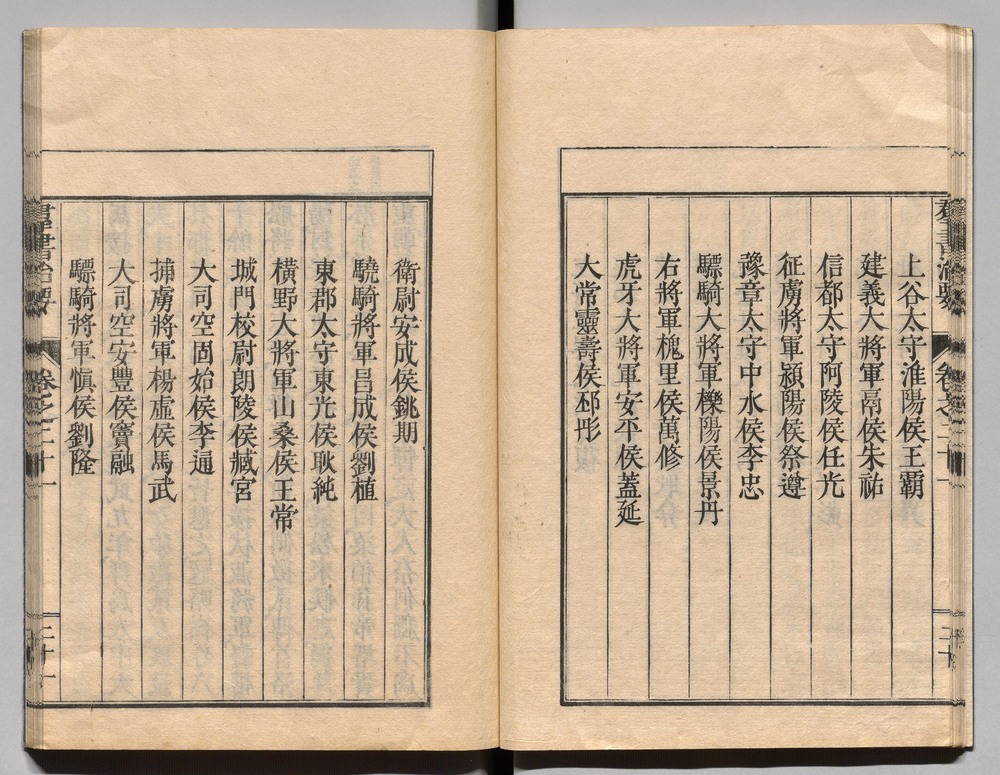 上谷太守淮陽侯王霸
建義大將軍鬲侯朱祐
信都太守阿陵侯任光
征虜將軍潁陽侯祭遵
豫章太守中水侯李忠
驃騎大將軍櫟陽侯景丹
右將軍槐里侯萬修
虎牙大將軍安平侯蓋延
大常靈壽侯邳彤
衛尉安成侯銚期
驍騎將軍昌成侯劉植
東郡太守東光侯耿純
橫野大將軍山桑侯王常
城門校尉朗陵侯臧宮
大司空固始侯李通
捕虜將軍楊虛侯馬武
大司空安豐侯竇融
驃騎將軍愼侯劉隆
群書治要
卷之二十一
二十一